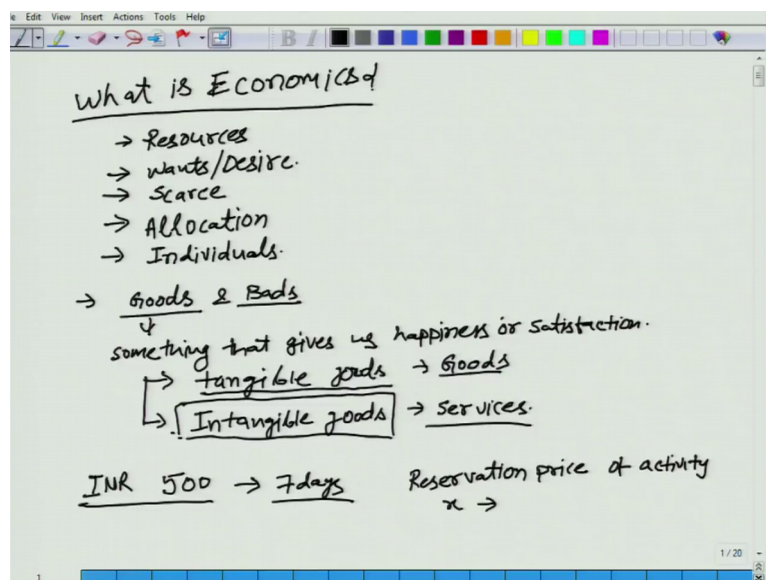 e Edit View Insert Actions Tools Help
What is Economics?
→ Resources
→ Wants/Desire.
→ Scarce
→ Allocation
→ Individuals.
→ Goods & Bads
something that gives us happiness or satisfaction.
→ tangible goods → Goods
→ Intangible goods → services.
INR 500 → 7days Reservation price of activity
x →
1 / 20
1